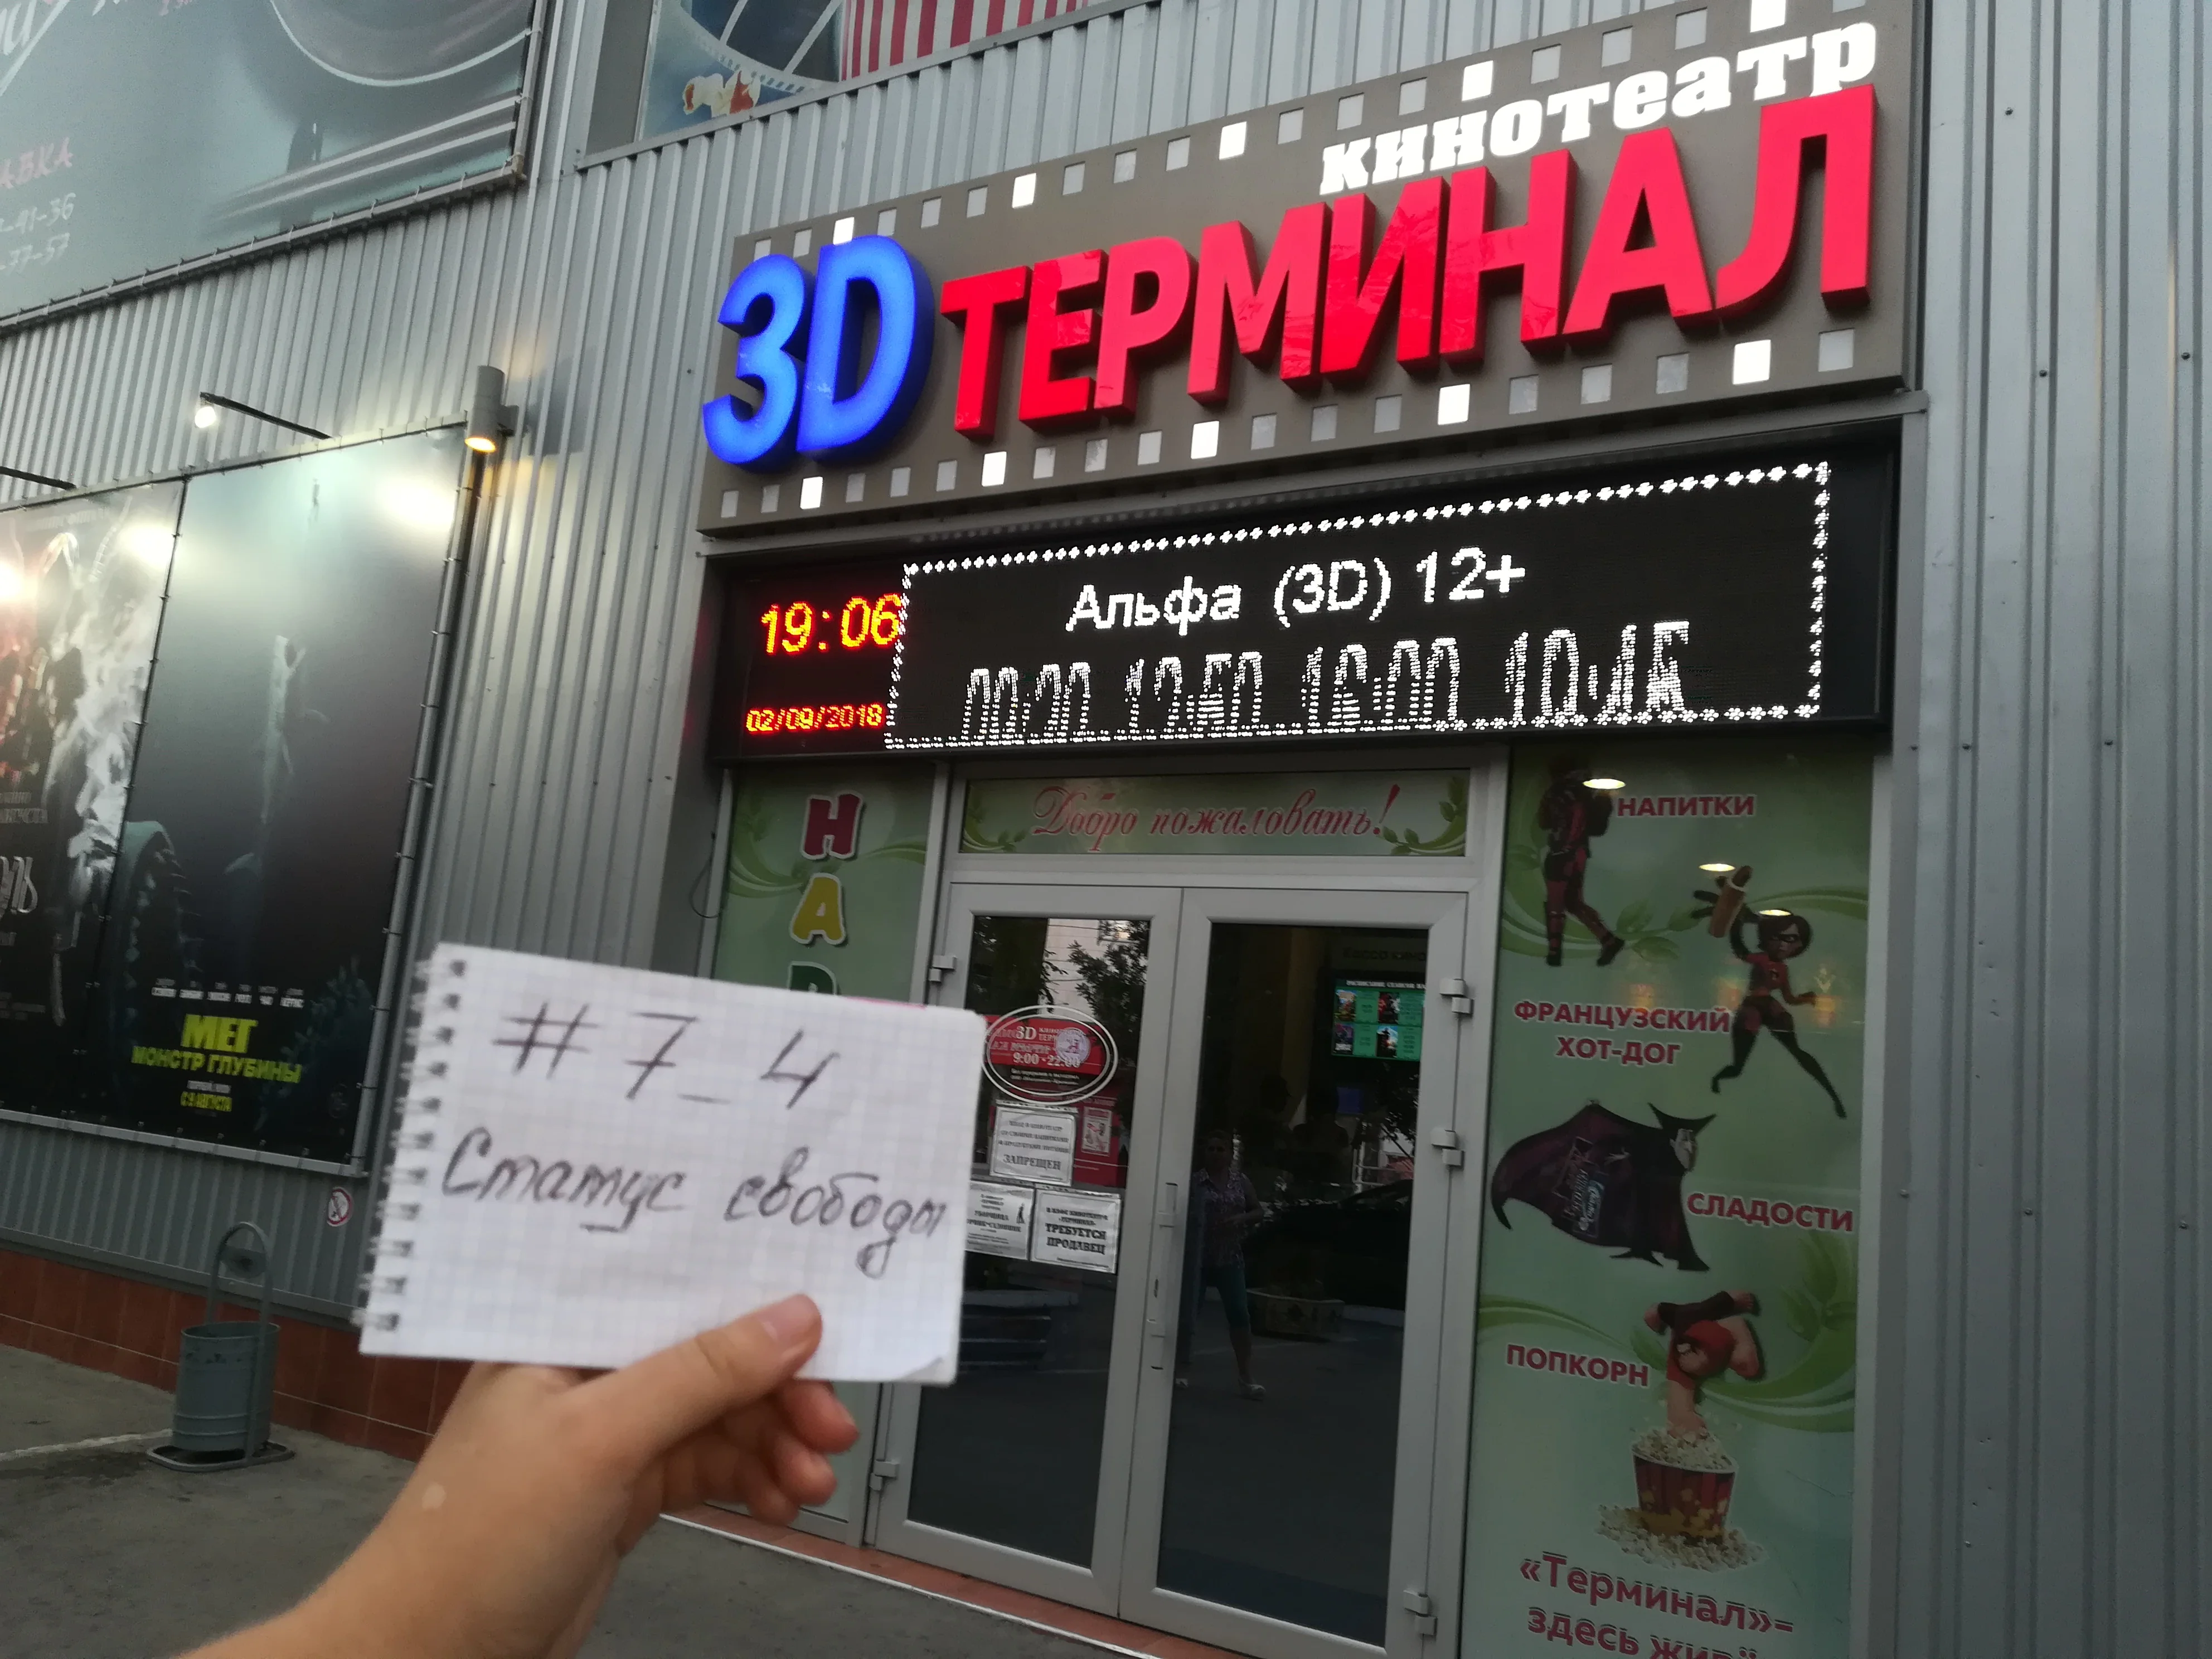 АВКА
-41-36
-77-57
кинотеатр
3D ТЕРМИНАЛ
19:06
02/09/2018
Альфа (3D) 12+
Добро пожаловать!
Н
А
НАПИТКИ
ФРАНЦУЗСКИЙ
ХОТ-ДОГ
СЛАДОСТИ
ПОПКОРН
«Терминал»=
здесь
МЕГ
МОНСТР ГЛУБИНЫ
С 9 АВГУСТА
#7_4
Статус свободы
3D
9:00-22:00
ЗАПРЕЩЕН
УБОРЩИЦА
ТРЕБУЕТСЯ
ПРОДАВЕЦ